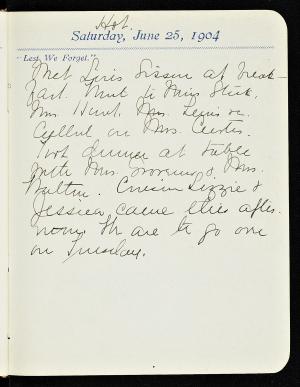 Hot.
Saturday, June 25, 1904
"Lest We Forget."
Met Lewis Sissen at break-
fast. Went to Miss Stick,
Mrs. Hunt. Mrs. Lewis &
Called on Mrs. Custis.
Took dinner at table
with Mrs. &  Mrs.
Cousin Lizzie &
Jessica came this after-
noon. are to go
on Tuesday.